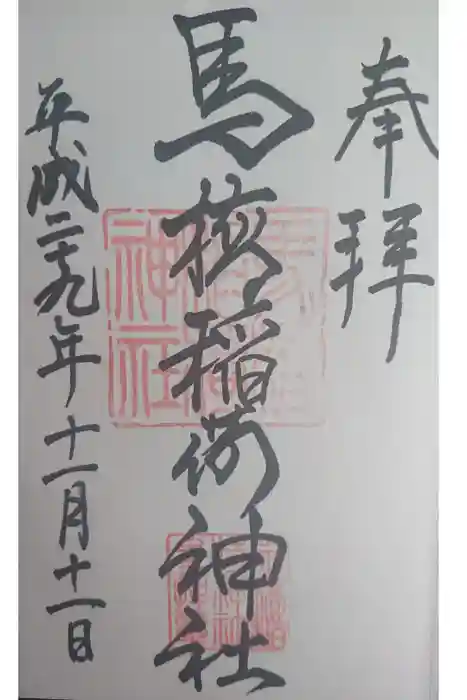 奉拝
馬橋稲荷神社
平成二十九年十一月十一日
神社